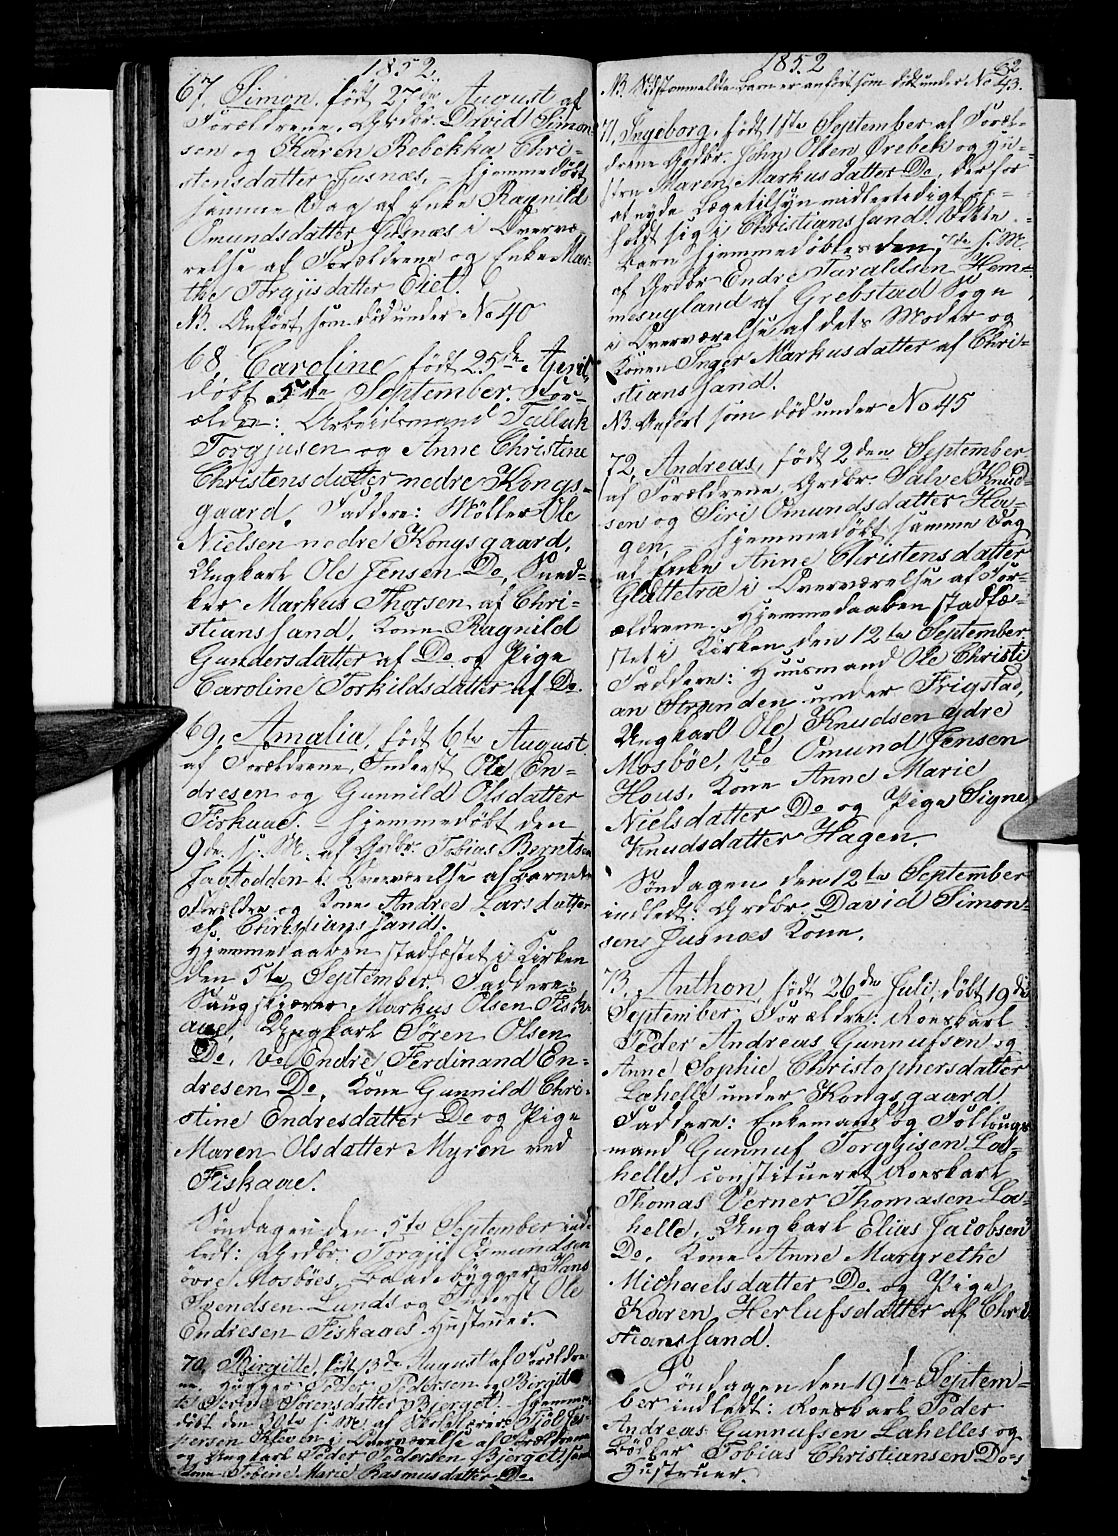 1852.
67, Simon, født 27de August af
Forældrene, Grdbr. David Simon-
sen og Karen Rebekka Chri-
stensdatter Jusnæs, – hjemmedøbt
samme Dag af Enke Ragnild
Omundsdatter Jusnæs i Overvæ-
relse af Forældrene og Enke Mar-
the Torgjusdatter Eiet.
NB. Anført som død under No 40
68, Caroline, født 25de April
døbt 5te September. For-
ældre: Arbeidsmand Tallak
Torgjusen og Anne Christine
Christensdatter nedre Kongs-
gaard. Faddere: Møller Ole
Nielsen nedre Kongsgaard,
Ungkarl Ole Jensen Do, Sned-
ker Markus Thorsen af Chri-
stianssand, Kone Ragnild
Gundersdatter af Do og Pige
Caroline Torkildsdatter af Do.
69, Amalia, født 6te August
af Forældrene, Inderst Ole En-
dresen og Gunnild Olsdatter
Fiskaae. – hjemmedøbt den
9de s. M. af Grdbr. Tobias Berntsen
Fagtodden i Overværelse af Barnets
Forældre og Kone Andrea Larsdatter
af Christianssand.
Hjemmedaaben stadfæstet i Kirken
den 5te September. Faddere:
Saugskjærer Markus Olsen Fisk-
aae, Ungkarl Søren Olsen
Do, Do Endre Ferdinand En-
dresen Do, Kone Gunnild Chri-
stine Endresdatter Do og Pige
Maren Olsdatter Myron ved
Fiskaae.
Søndagen den 5te September ind-
ledt: Grdbr. Torgjus Osmundsen
øvre Mosbøes, Baadebygger Hans
Svendsen Lunds og Inderst Ole
Endresen Fiskaaes Hustruer.
70, Birgitte, født 13de August af Forældre-
ne, Peder Pedersen og Birgit-
te Serine Sørensdatter Bjerget. – hjemme-
døbt den s. M. af
persen Kleven i Overværelse af Forældrene
og Ungkarl Peder Pedersen Bjerget samt
Kone Tobine Marie Rasmusdatter Do.
1852
62
NB. Sidstanmeldte Barn er anført som død under No 43.
71, Ingeborg, født 1ste September af Foræl-
drene Grdbr. John Olsen Ørebek og Hu-
stru Maren Markusdatter Do, der for
at nyde Lægetilsyn midlertidigt op-
holdt sig i Christianssand. Dette
Barn hjemmedøbtes den 7de s. M.
af Grdbr Endre Taraldsen Hem-
mesugland af Grebstad Sogn
i Overværelse af dets Moder og
Konen Inger Markusdatter af Chri-
stianssand.
NB. Anført som død under No 45
72, Andreas, født 2den September
af Forældrene, Grdbr. Salve Knud-
sen og Siri Omundsdatter Ha-
gen, – hjemmedøbt samme Dag
af Enke Anne Christensdatter
Glattetræ i Overværelse af For-
ældrene. Hjemmedaaben stadfæ-
stet i Kirken den 12te September
Faddere: Huusmand Ole Christi
an Stranden under Frigstad,
Ungkarl Ole Knudsen ydre
Mosbøe, Do Omund Jensen
Hous, Kone Anne Marie
Nielsdatter Do og Pige Signe
Knudsdatter Hagen.
Søndagen den 12te September
indledt: Grdbr. David Simon-
sens Jusnæs Kone.
73, Anthon, født 26de Juli, døbt 19de
September. Forældre: Roeskarl
Peder Andreas Gunnufsen og
Anne Sophie Christophersdatter
Lahelle under Kongsgaard.
Faddere: Enkemand og Follougs-
mand Gunnuf Torgjisen La-
helle, constitueret Roeskarl
Thomas Verner Thomasen La-
helle, Ungkarl Elias Jacobsen
Do, Kone Anne Margrethe
Michaelsdatter Do og Pige
Karen Herlufsdatter af Chri-
stianssand.
Søndagen den 19de Septem-
ber indledt: Roeskarl Peder
Andreas Gunnufsen Lahelles og
Bødker Tobias Christiansen Do's
Hustruer.